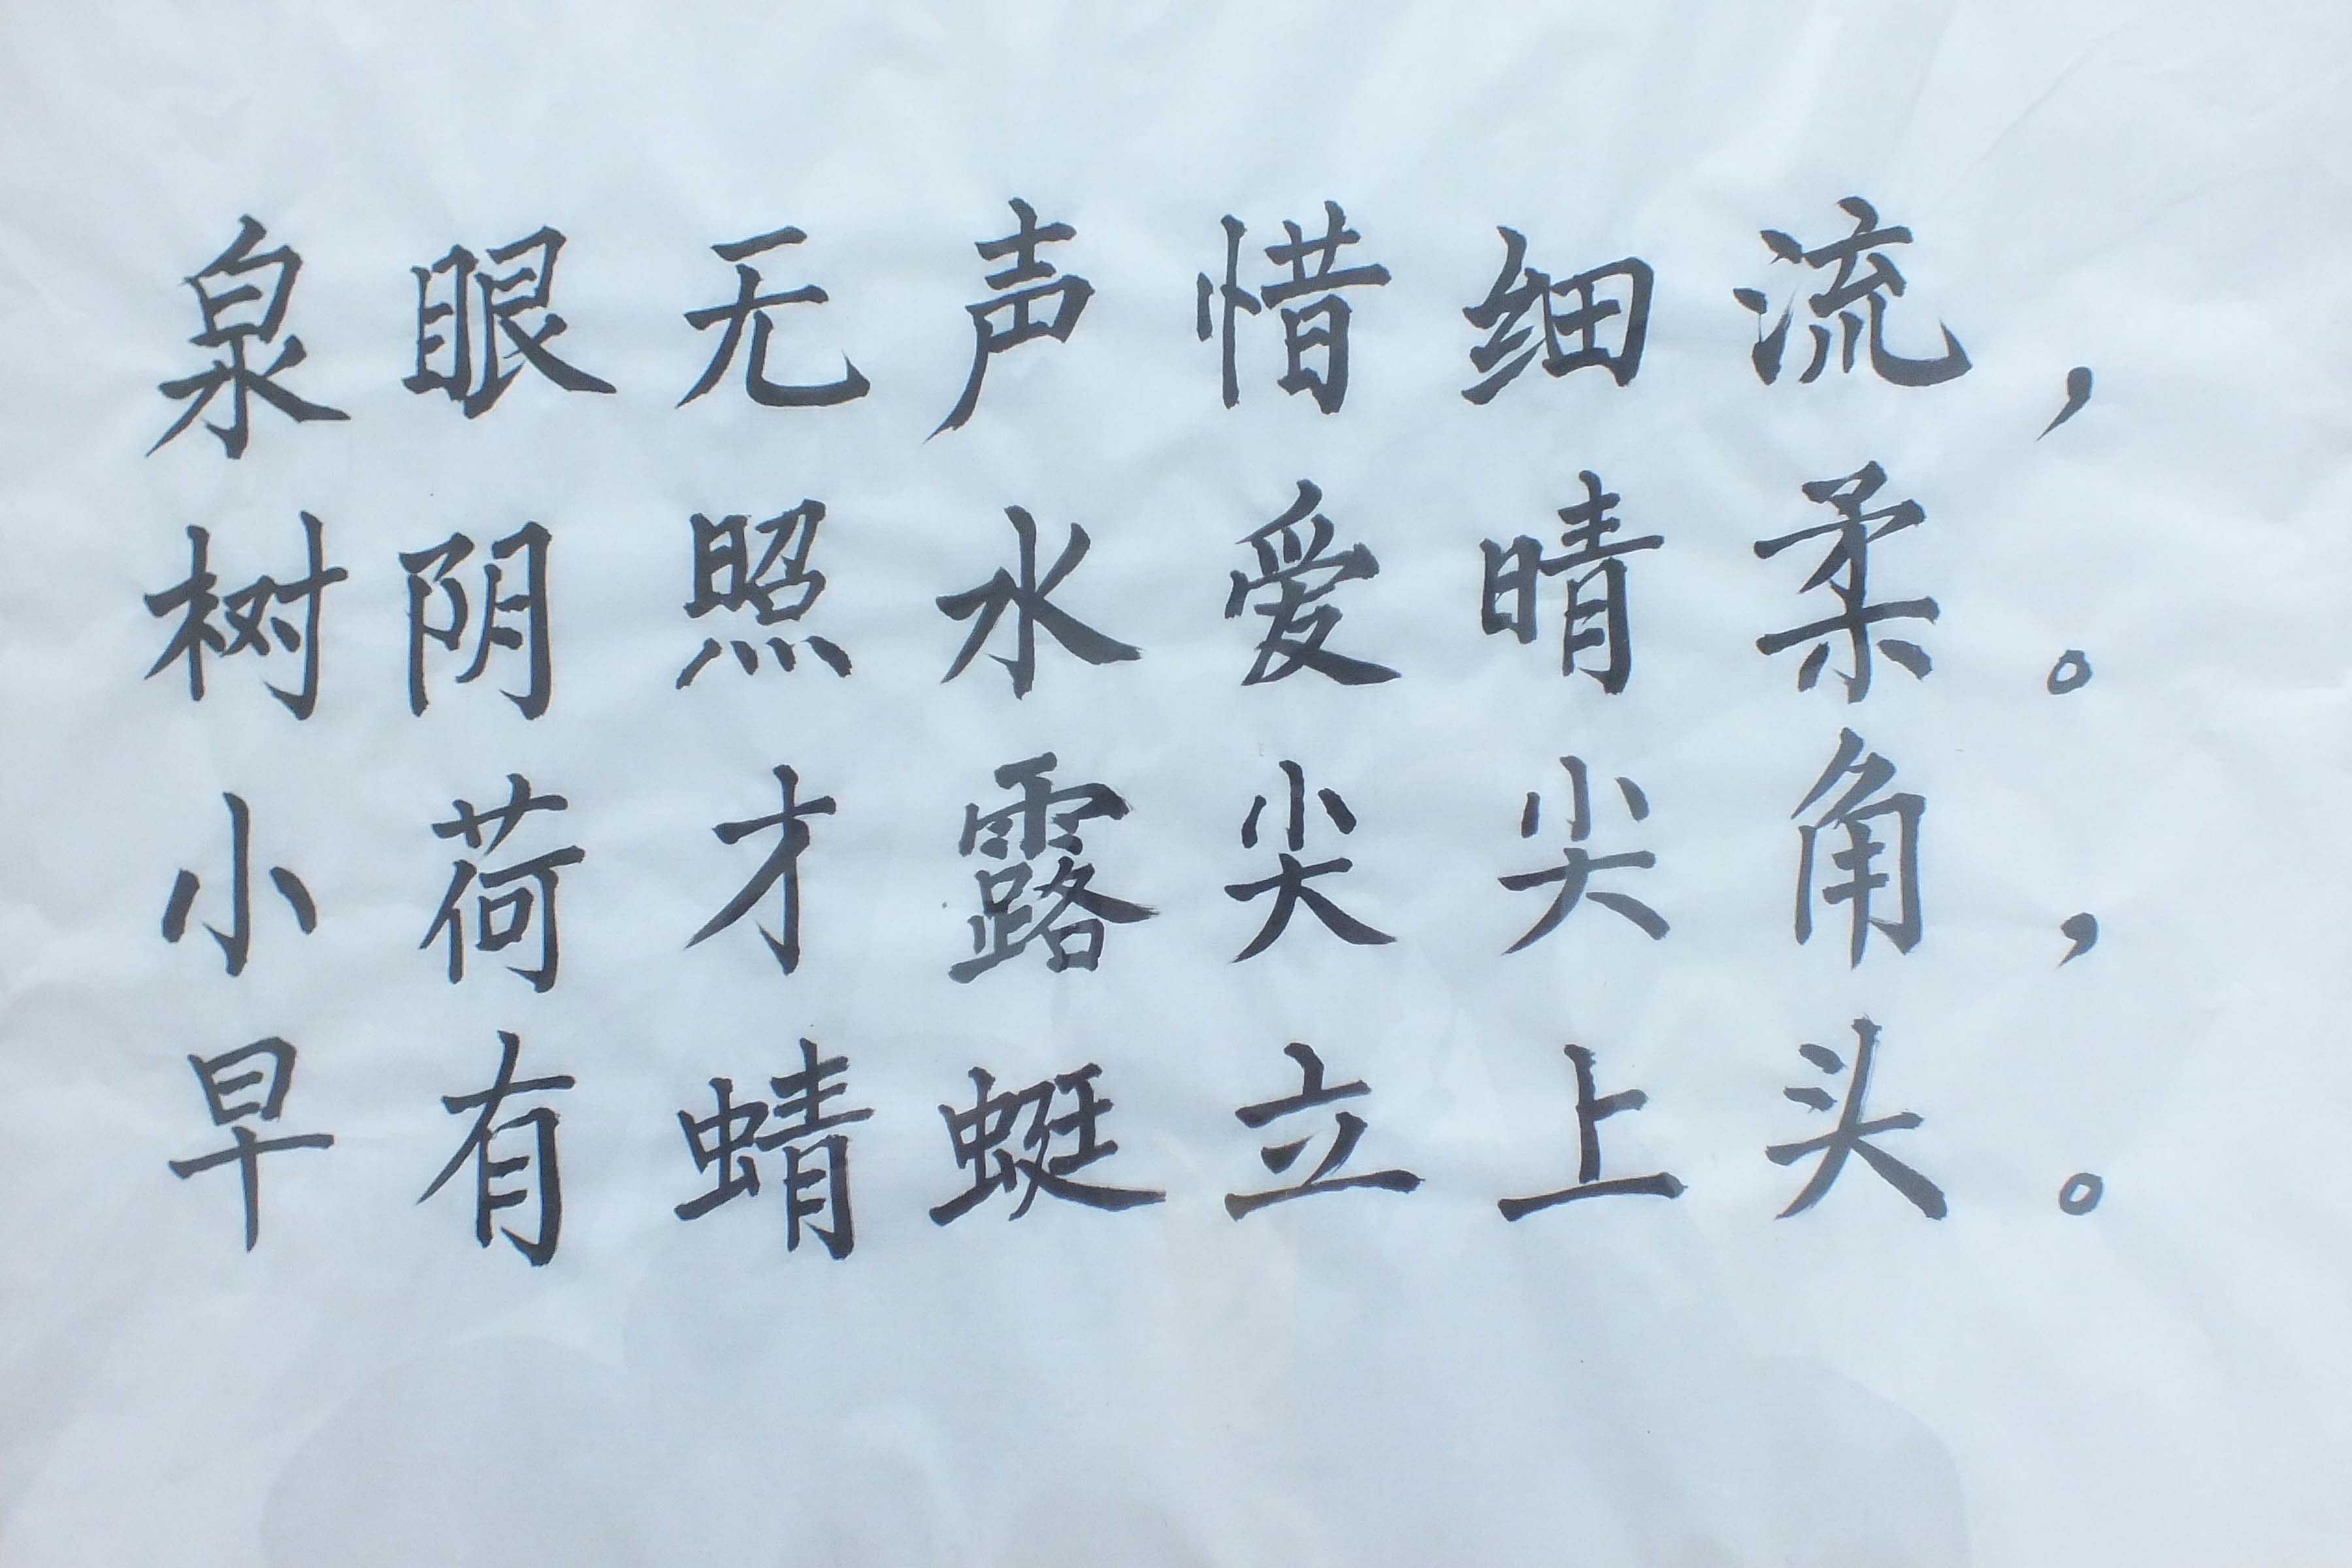 泉眼无声惜细流，
树阴照水爱晴柔。
小荷才露尖尖角，
早有蜻蜓立上头。